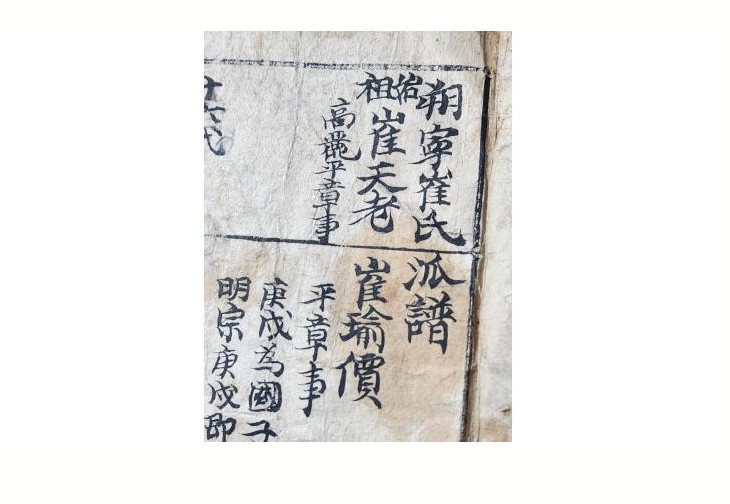 朔寧崔氏派譜
始祖
崔天老
高麗平章事
崔瑜價
平章事
庚戌為國子
明宗庚戌即